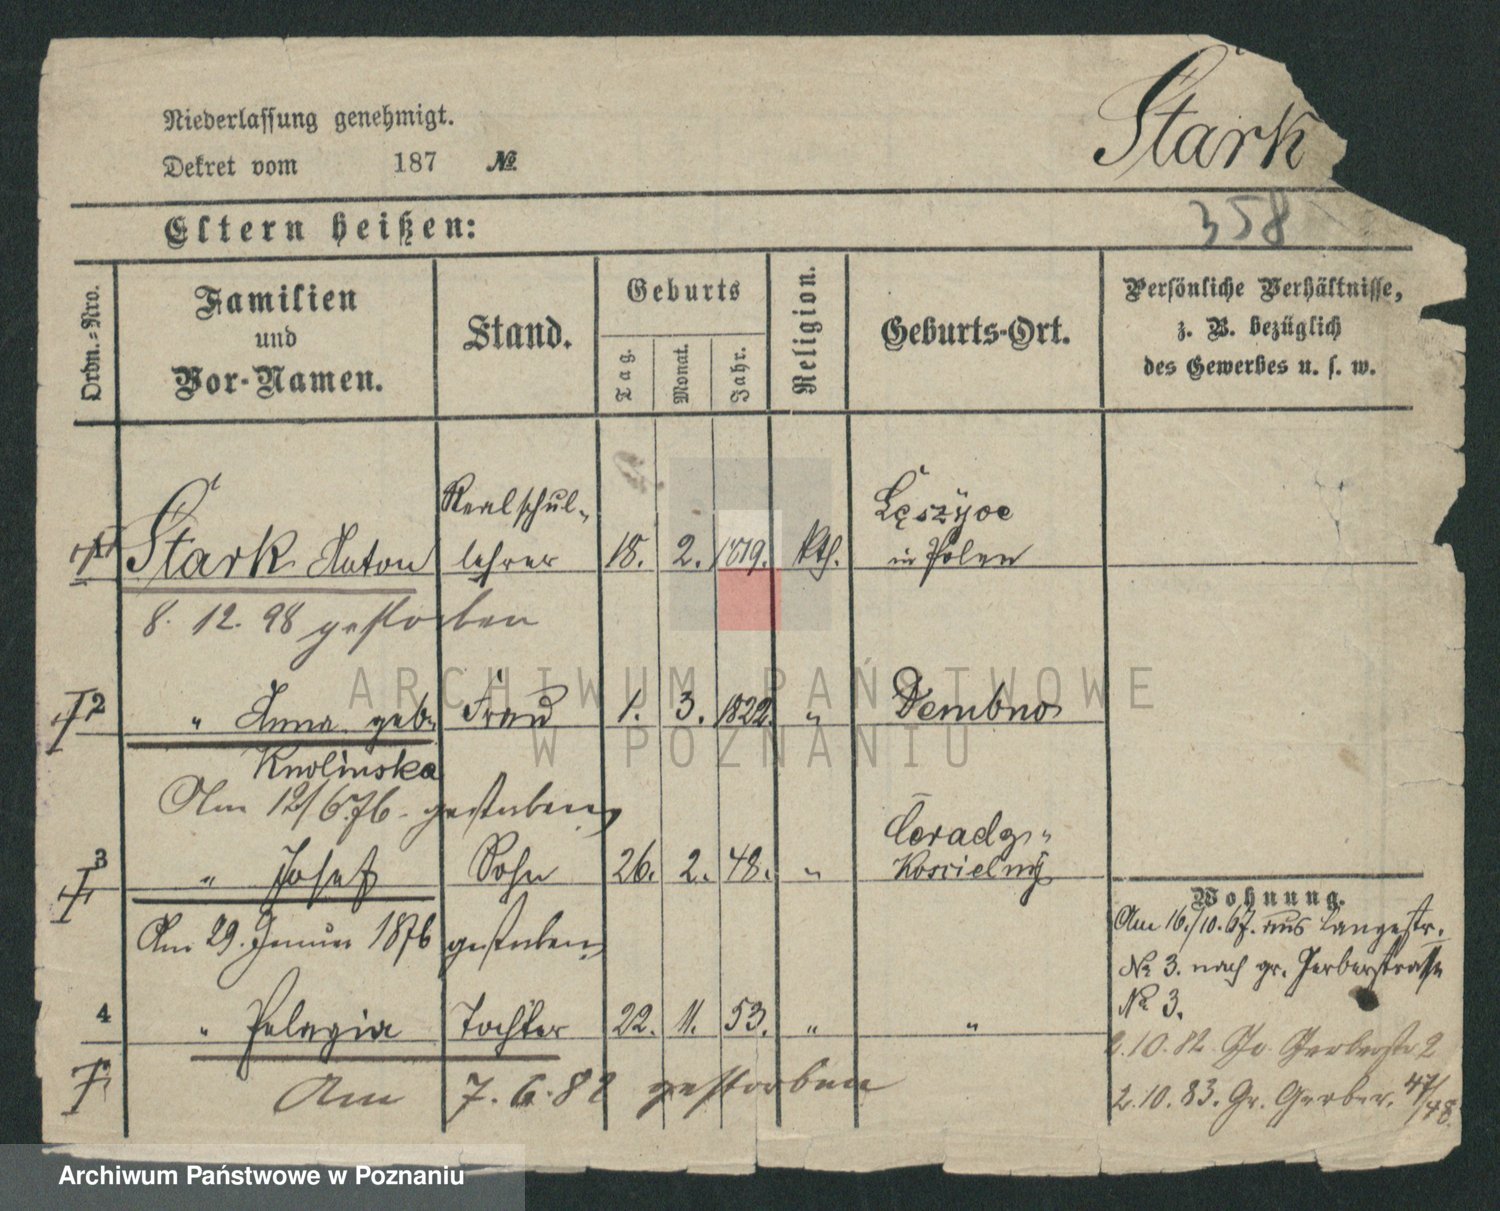 Stark
Niederlassung genehmigt.
Dekret vom 187 №
358
Eltern heißen:
Ordn.-Nro.
Familien
und
Vor-Namen.
Stand.
Geburts
Tag.
Monat.
Jahr.
Religion.
Geburts-Ort.
Persönliche Verhältnisse,
z. B. bezüglich
des Gewerbes u. s. w.
1 Stark Anton Realschul-
lehrer 18. 2. 1819. kth.
in Polen
8. 12. 98 gestorben
2 " Anna geb. Frau 1. 3. 1822. " Dembno
Am 12/6 76. gestorben
3 " Josef Sohn 26. 2. 48. " Ceradz-
Koscielny
Am 29. Januar 1876 gestorben
4 " Pelagia Tochter 22. 11. 53. " "
Am 7. 6. 88 gestorben
Wohnung.
Am 16./10. 67. aus Langestr.
№ 3. nach gr. Gerberstrasse
№ 3.
2. 10. 82 Gr. Gerberstr 2
2. 10. 83. Gr. Gerber. 47/48.
ARCHIWUM PAŃSTWOWE
W POZNANIU
Archiwum Państwowe w Poznaniu